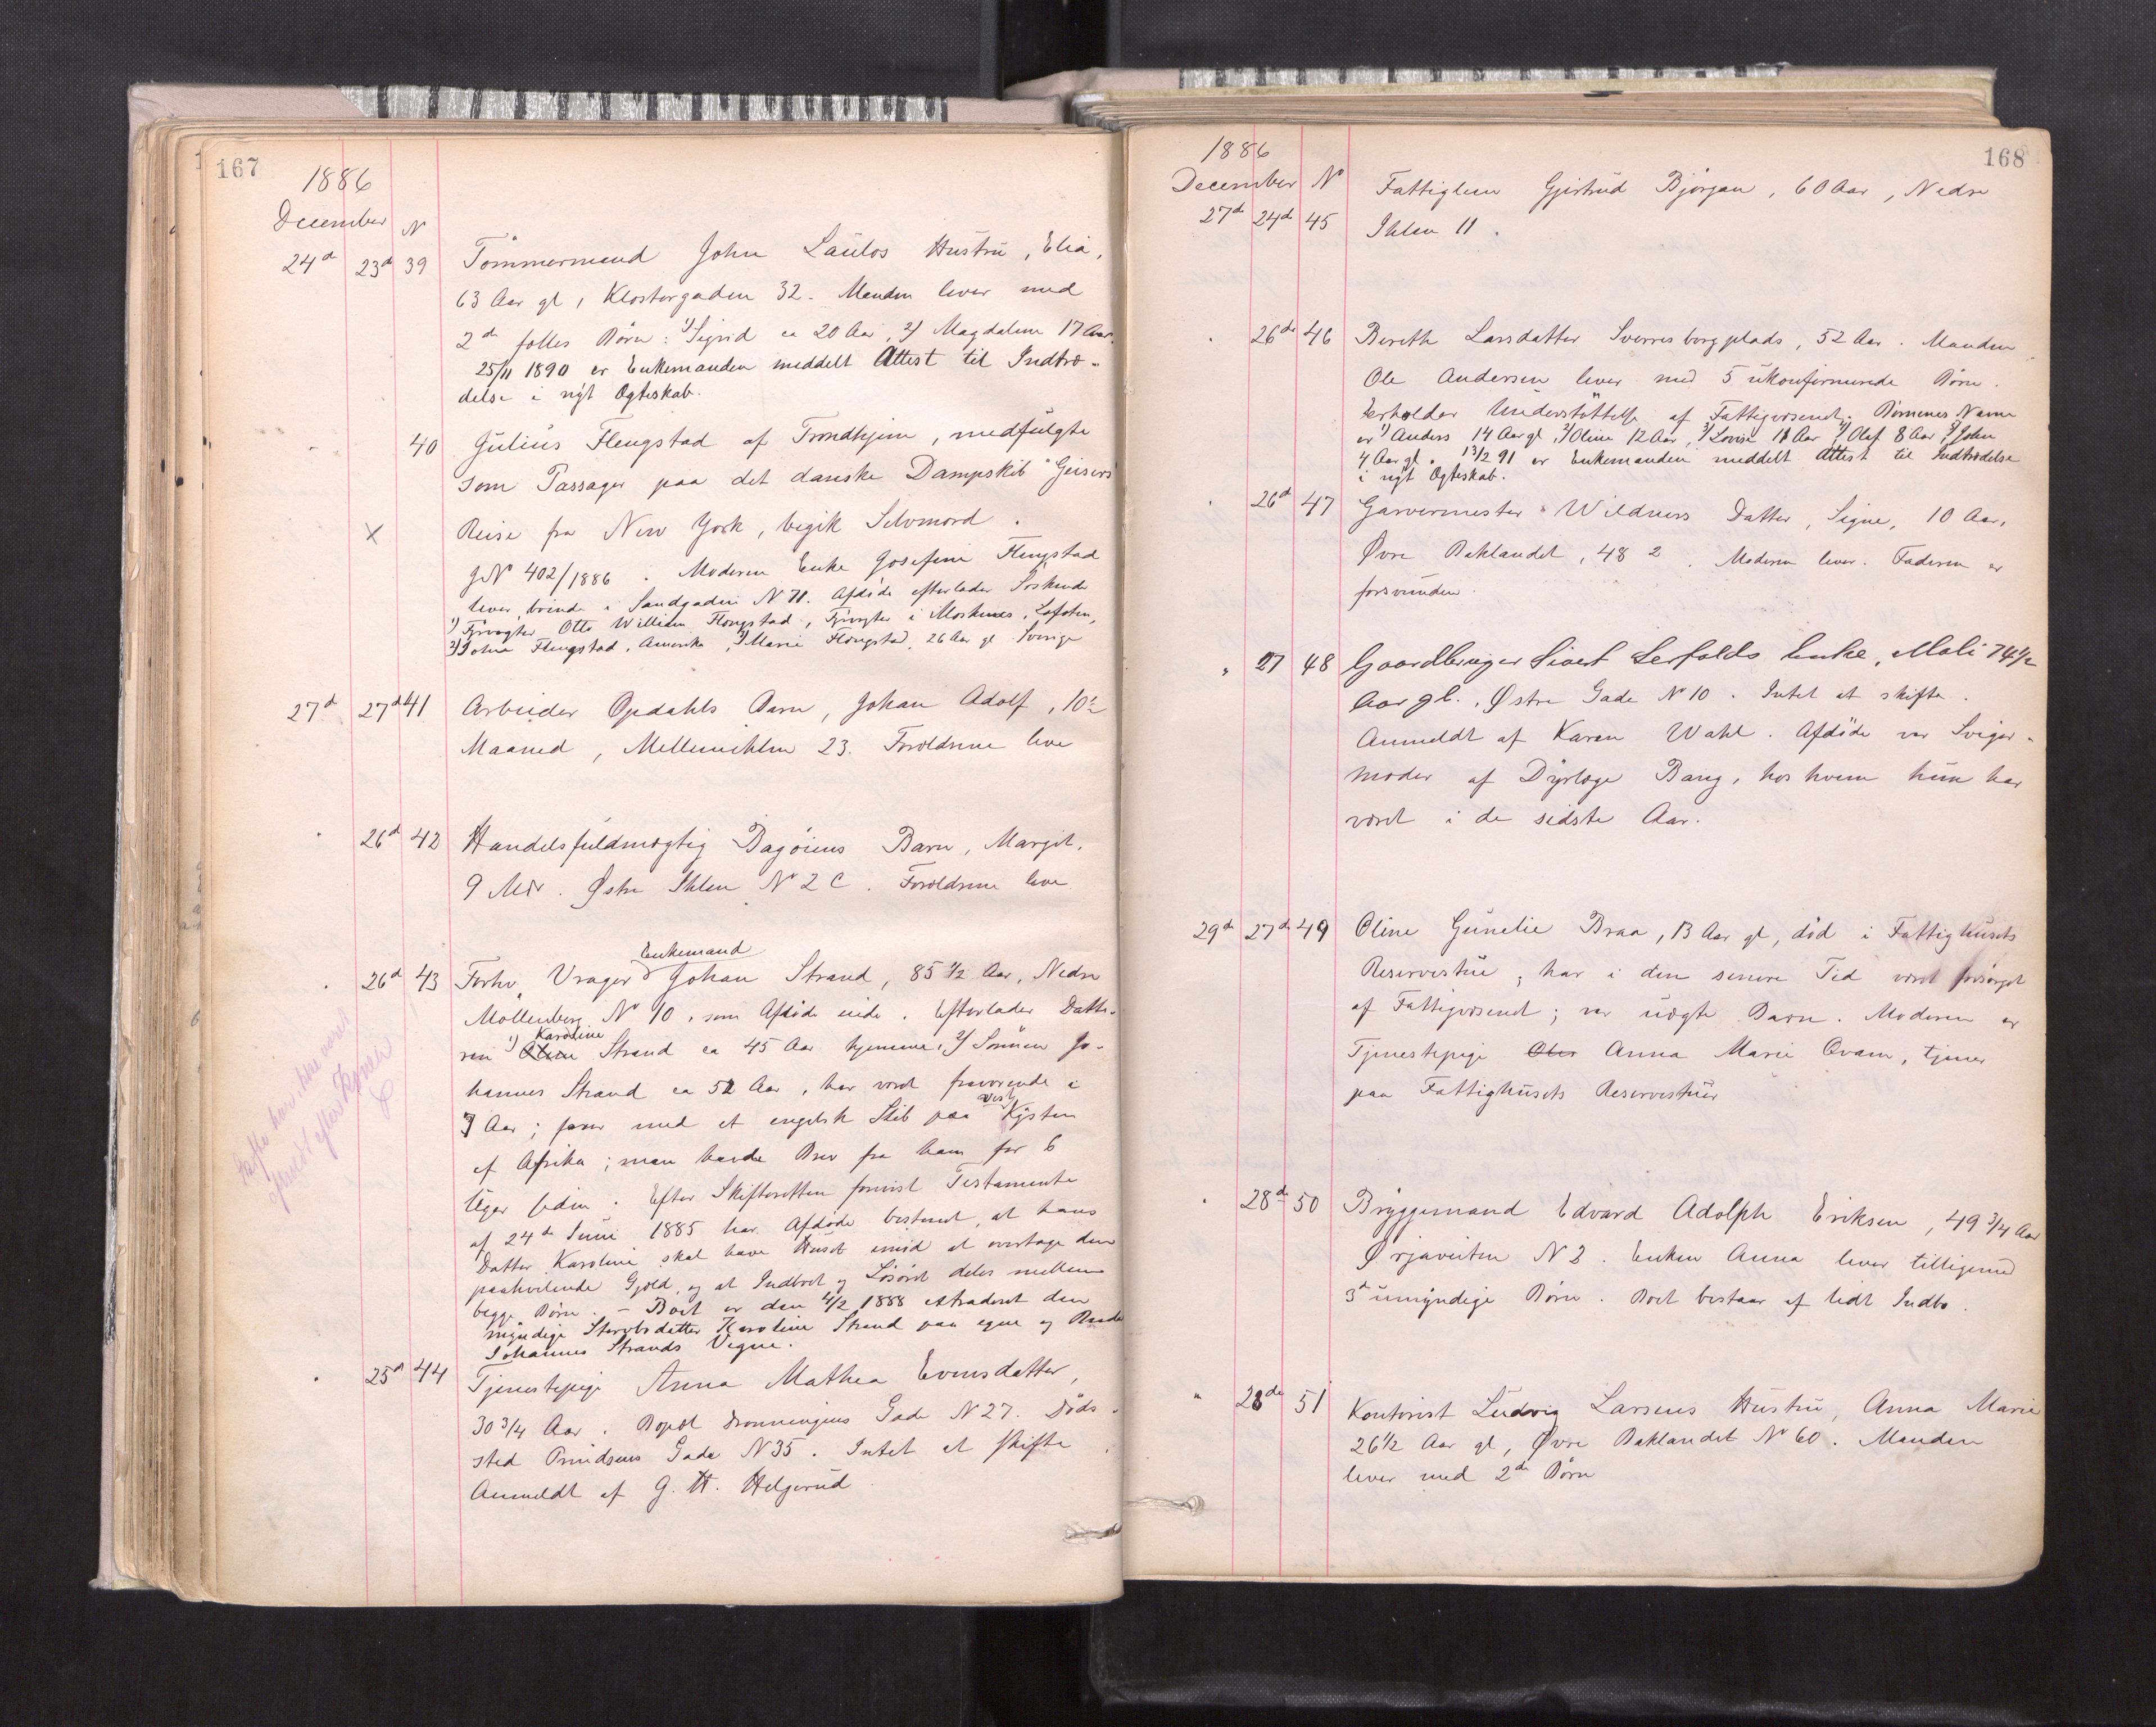 167
1886
December N
24d 23d 39 Tömmermand John Laulos Hustru, Elia,
63 Aar gl, Klostergaden 32. Manden lever med
2de fælles Börn: 1) Sigrid ca 20 Aar, 2) Magdalene 17 Aar.
25/11 1890 er Enkemanden meddelt Attest til Indtræ-
delse i nyt Ægteskab.
40 Julius Flengstad af Trondhjem, medfulgte
som Passager paa det danske Dampskib "Geisers
X Reise fra New York, begik Selvmord.
JN 402/1886. Moderen Enke Josefine Flengstad
lever boende i Sandgaden N 71. Afdöde efterlader Söskende
1) Fyrvogter Otto William Flengstad, Fyrvogter i Moskenes, Lofoten,
2) Johan Flengstad, Amerika, 3) Marie Flengstad, 26 Aar gl Sverige
27d 27d 41 Arbeider Opdahls Barn, Johan Adolf, 10
Maaned, Mellemihlen 23. Forældrene leve
" 26d 42 Handelsfuldmægtig Bagöiens Barn, Margit,
9 Mdr. Østre Ihlen N 2 C. Forældrene leve
Enkemand
" 26d 43 Forhv. Vrager Johan Strand, 85 1/2 Aar, Nedre
Möllenberg N 10, som Afdöde eiede. Efterlader Datte-
Karoline
ren 1) Strand ca 45 Aar hjemme, 2) Sönnen Jo-
hannes Strand ca 52 Aar, har været fraværende i
Vest
7 Aar; farer med et engelsk Skib paa Kysten
af Afrika; man havde Brev fra ham for 6
Uger siden. Efter Skifteretten forevist Testamente
af 24de Juni 1885 har Afdöde bestemt, at hans
Datter Karoline skal have Huset imod at overtage den
paahvilende Gjæld, og at Indboet og Lösöret deles mellem
begge Börn. - Boet er den 4/2 1888 extraderet den
myndige Stervbsdatter Karoline Strand paa egne og Broder
Johannes Strands Vegne.
Skifte har ikke været
" 25d 44 Tjenestepige Anna Mathea Evensdatter,
30 3/4 Aar. Bopæl Dronningens Gade N 27. Döds-
sted Prindsens Gade N 35. Intet at skifte.
Anmeldt af G. H. Helgerud
168
1886
December No Fattiglem Gjertrud Björgan, 60 Aar, Nedre
27de 24de 45 Ihlen 11.
" 26de 46 Bereth Larsdatter Sverresborgplads, 52 Aar. Manden
Ole Andersen lever med 5 ukonfirmerede Börn.
Erholder Understöttelse af Fattigvæsenet. Börnenes Navne
er 1) Anders 14 Aar gl, 2) Oline 12 Aar, 3) Lovise 11 Aar 4) Olaf 8 Aar, 5) John
4 Aar gl. 13/2 91 er Enkemanden meddelt Attest til Indtrædelse
i nyt Ægteskab.
" 26d 47 Garvermester Wildners Datter, Signe, 10 Aar,
Øvre Baklandet, 48 2. Moderen lever. Faderen er
forsvunden.
" 27 48 Gaardbruger Sivert Lerfalds Enke, Mali 74 1/2
Aar gl., Østre Gade No 10. Intet at skifte.
Anmeldt af Karen Wahl. Afdöde var Sviger-
moder af Dyrlæge Bang, hos hvem hun har
været i de sidste Aar.
29de 27de 49 Oline Gunelie Braa, 13 Aar gl, död i Fattighusets
Reservestue; har i den senere Tid været forsörget
af Fattigvæsenet; var uægte Barn. Moderen er
Tjenestepige Anna Marie Qvam, tjener
paa Fattighusets Reservestuer
" 28de 50 Bryggemand Edvard Adolph Eriksen, 49 3/4 Aar
Ørjaveiten N 2. Enken Anna lever tilligemed
3de umyndige Börn. Boet bestaar af lidt Indbo.
" 28de 51 Kontorist Ludvig Larsens Hustru, Anna Marie
26 1/2 Aar gl, Øvre Baklandet No 60. Manden
lever med 2de Börn